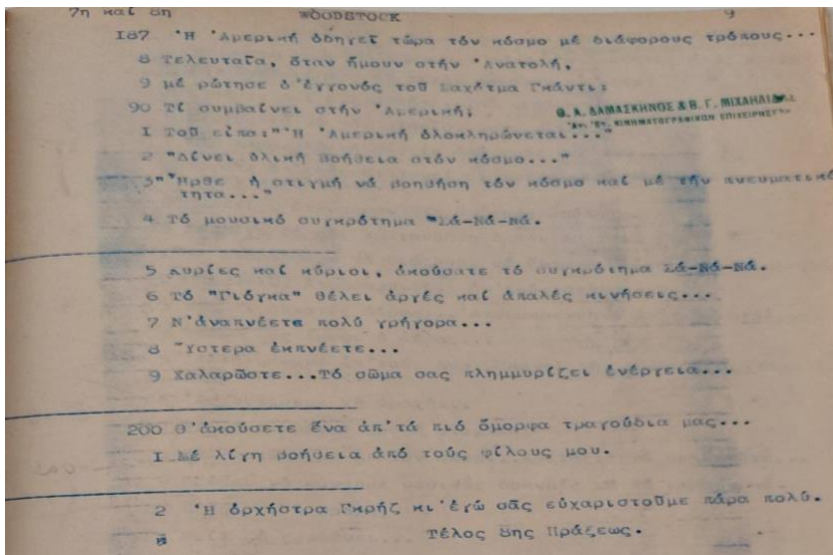 7η καί 8η WOODSTOCK 9
I87 'Η 'Αμερική ὁδηγεῖ τώρα τόν κόσμο μέ διάφορους τρόπους...
8 Τελευταῖα, ὅταν ἤμουν στήν 'Ανατολή,
9 μέ ρώτησε ὁ ἔγγονός τοῦ Μαχάτμα Γκάντι:
90 Τί συμβαίνει στήν 'Αμερική;
Θ. Α. ΔΑΜΑΣΚΗΝΟΣ & Β. Γ. ΜΙΧΑΗΛΙΔΗΣ
ΚΙΝΗΜΑΤΟΓΡΑΦΙΚΩΝ ΕΠΙΧΕΙΡΗΣΕΩΝ
I Τοῦ εἶπα:"'Η 'Αμερική ὁλοκληρώνεται..."
2 "Δίνει ὑλική βοήθεια στόν κόσμο..."
3"῏Ηρθε ἡ στιγμή νά βοηθήση τόν κόσμο καί μέ τήν πνευματικό
τητα..."
4 Τό μουσικό συγκρότημα "Σά-Νά-Νά.
5 Κυρίες καί κύριοι, ἀκούσατε τό συγκρότημα Σά-Νά-Νά.
6 Τό "Γιόγκα" θέλει ἀργές καί ἁπαλές κινήσεις...
7 Ν'ἀναπνέετε πολύ γρήγορα...
8 ῞Υστερα ἐκπνέετε...
9 Χαλαρῶστε...Τό σῶμα σας πλημμυρίζει ἐνέργεια...
200 Θ'ἀκούσετε ἕνα ἀπ'τά πιό ὄμορφα τραγούδια μας...
I Μέ λίγη βοήθεια ἀπό τούς φίλους μου.
2 'Η ὀρχήστρα Γκρήζ κι'ἐγώ σᾶς εὐχαριστοῦμε πάρα πολύ.
Τέλος 8ης Πράξεως.